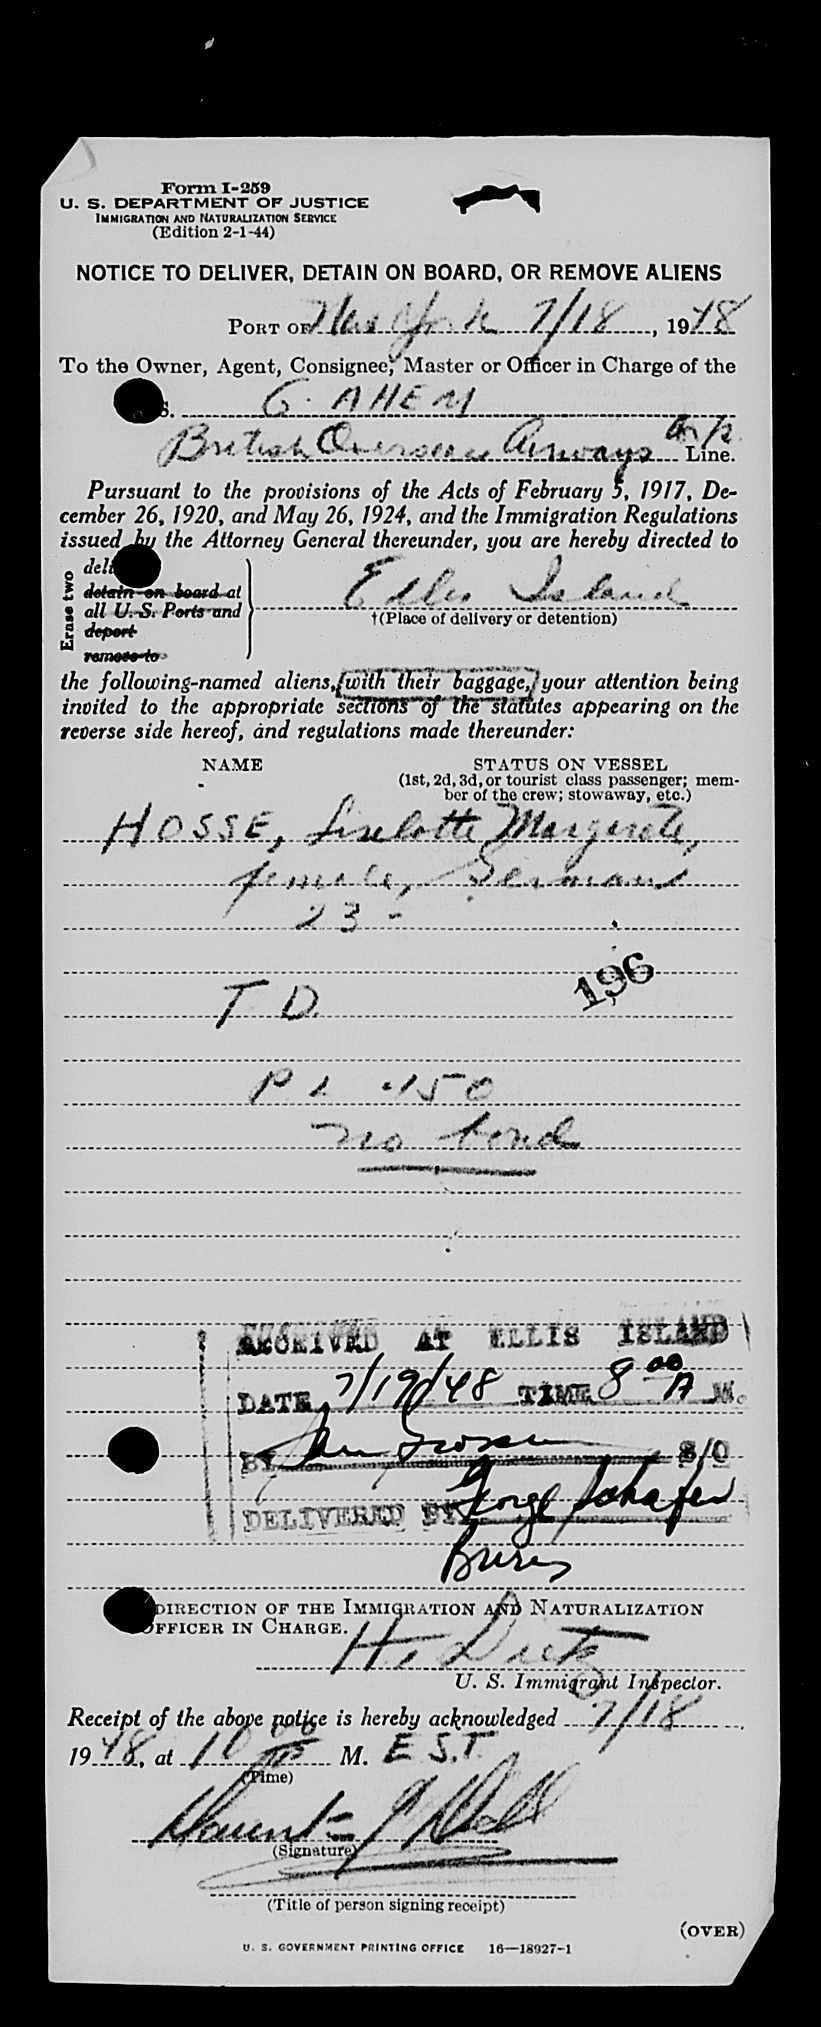 Form I-259
U. S. DEPARTMENT OF JUSTICE
IMMIGRATION AND NATURALIZATION SERVICE
(Edition 2-1-44)
NOTICE TO DELIVER, DETAIN ON BOARD, OR REMOVE ALIENS
PORT OF New York 7/18, 1948
To the Owner, Agent, Consignee, Master or Officer in Charge of the
S. G. AHEM
British Overseas Airways Line.
Pursuant to the provisions of the Acts of February 5, 1917, De-
cember 26, 1920, and May 26, 1924, and the Immigration Regulations
issued by the Attorney General thereunder, you are hereby directed to
Erase two
detain on board at
all U. S. Ports and
deport
remove to
Ellis Island
†(Place of delivery or detention)
the following-named aliens, [with their baggage,] your attention being
invited to the appropriate sections of the statutes appearing on the
reverse side hereof, and regulations made thereunder:
NAME STATUS ON VESSEL
(1st, 2d, 3d, or tourist class passenger; mem-
ber of the crew; stowaway, etc.)
HOSSE, Liselotte Margerete,
female, German
23 -
196
T. D.
150
no bond
RECEIVED AT ELLIS ISLAND
DATE 7/19/48 TIME 8 00 A M.
BY S/O
DELIVERED BY George Schafer
Burns
DIRECTION OF THE IMMIGRATION AND NATURALIZATION
OFFICER IN CHARGE.
H. Dietz
U. S. Immigrant Inspector.
Receipt of the above notice is hereby acknowledged 7/18
1948, at 10 M. E.S.T.
(Time)
(Signature)
(Title of person signing receipt)
(OVER)
U. S. GOVERNMENT PRINTING OFFICE 16—18927-1